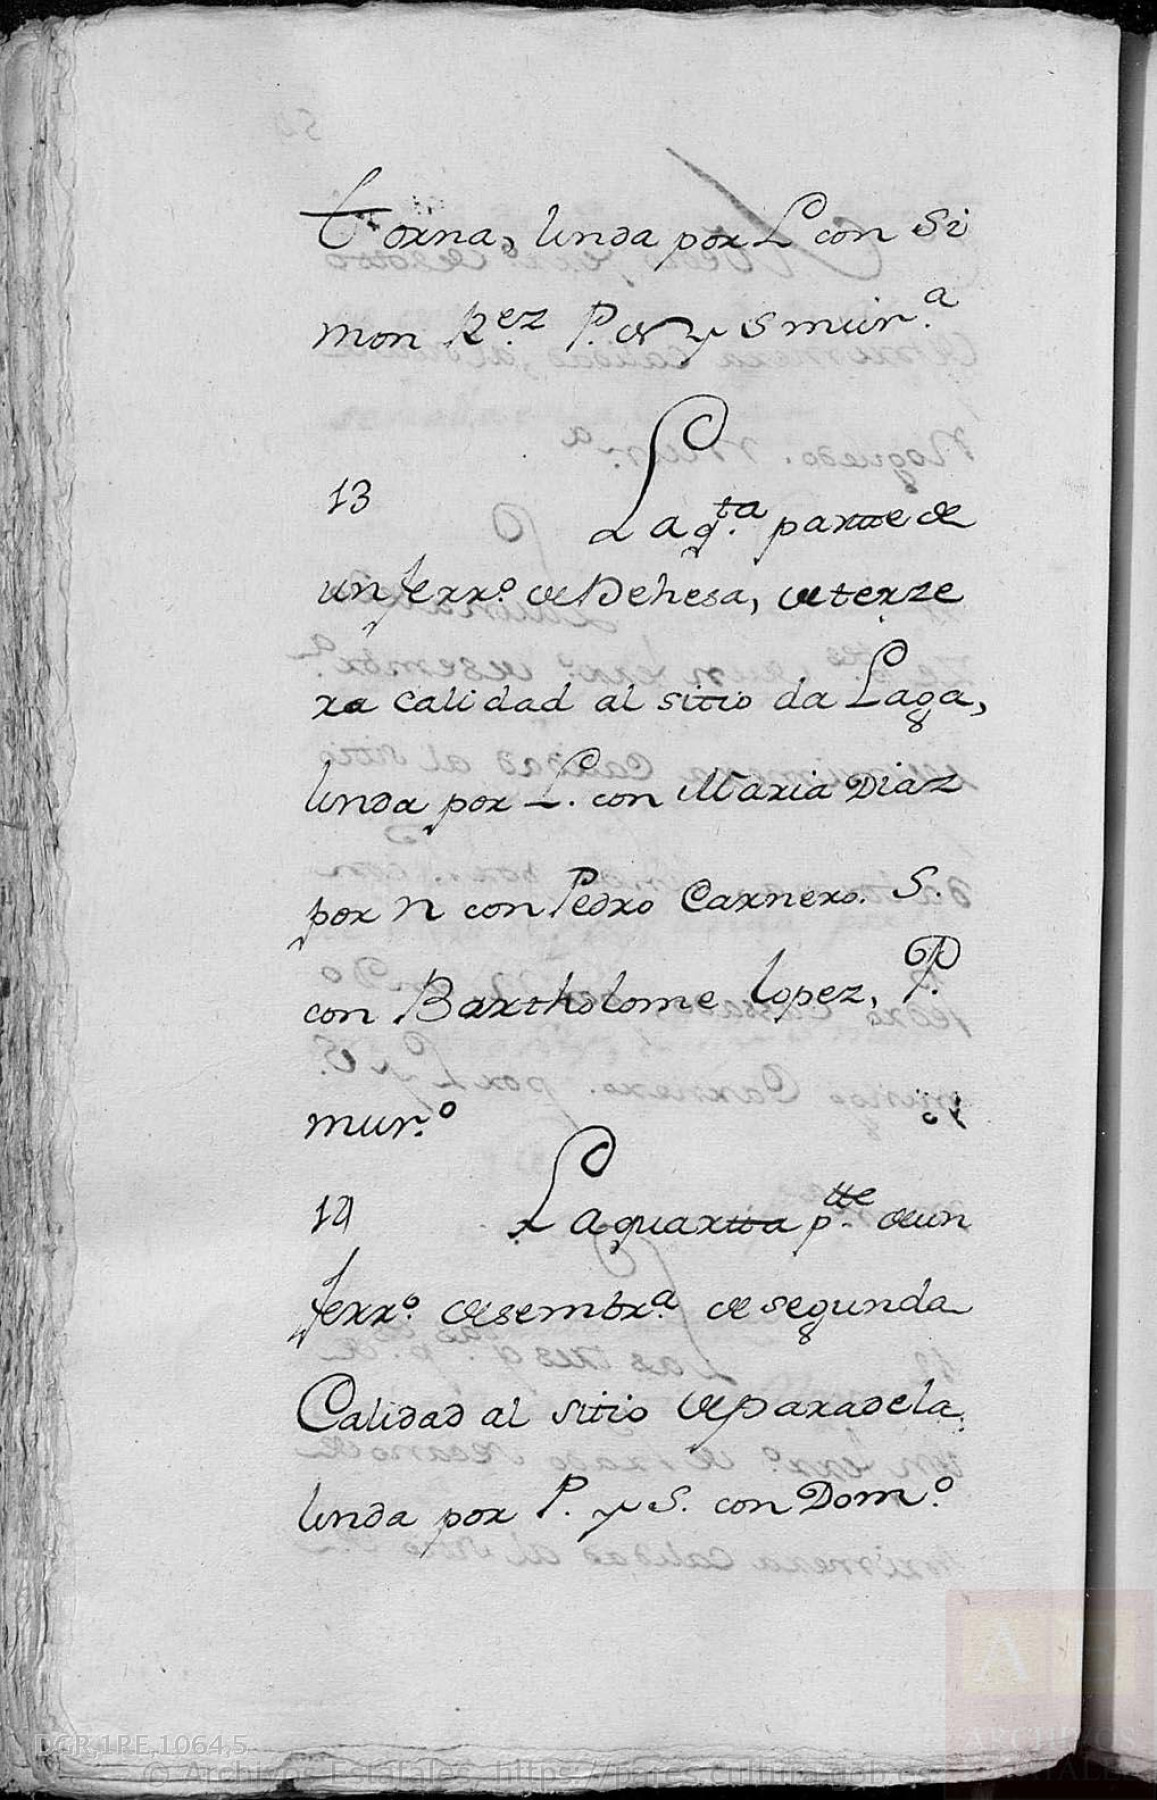 torna, linda por L con Si
mon Rez P. N y S mur.a
13
La q.ta partte de
un ferr.o de Dehesa, de terze
ra Calidad al sittio da Laga,
linda por L. con Maria Diaz
por N con Pedro Carnero. S.
con Bartholome Lopez, P.
mur.o
14
La quartta p.tte de un
ferr.o de sembr.a de segunda
Calidad al sitio de paradela,
linda por P. y S. con Dom.o
DGR,1RE,1064,5
© Archivos Estatales, https://pares.cultura.gob.es
AE
ARCHIVOS
ESTATALES